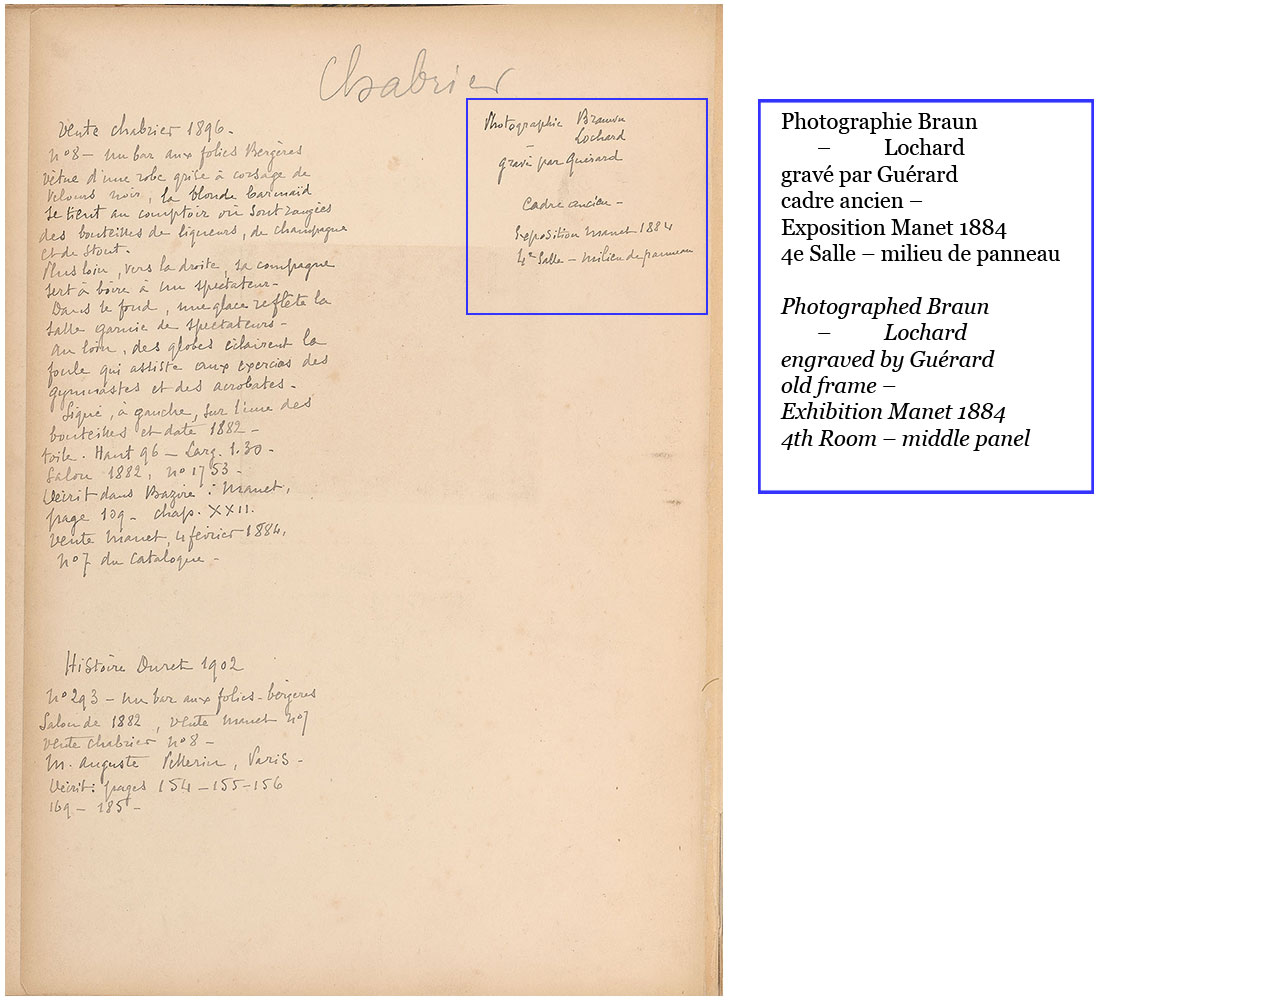 Chabrier
Vente Chabrier 1896 -
n° 8 - un bar aux folies Bergères
vêtue d'une robe grise à corsage de
velours noir, la blonde barmaid
se tient au comptoir où sont rangées
des bouteilles de liqueurs, de champagne
et de stout.
Plus loin, vers la droite, sa compagne
sert à boire à un spectateur -
Dans le fond, une glace reflète la
salle garnie de spectateurs -
au loin, des globes éclairent la
foule qui assiste aux exercices des
gymnastes et des acrobates -
Signé, à gauche, sur l'une des
bouteilles et daté 1882 -
toile. Haut 96 - Larg. 1.30 -
Salon 1882, n° 1753 -
Décrit dans Bazire : Manet,
page 109 - chap. XXII.
Vente Manet, 4 février 1884,
n° 7 du catalogue -
Histoire Duret 1902
n° 293 - un bar aux folies-bergères
Salon de 1882, vente Manet n° 7
vente chabrier n° 8 -
M. Auguste Pellerin, Paris -
Décrit : pages 154 - 155 - 156
169 - 185 -
Photographie Braun
- Lochard
gravé par Guérard
Cadre ancien -
Exposition Manet 1884
4e Salle - milieu de panneau
Photographie Braun
– Lochard
gravé par Guérard
cadre ancien –
Exposition Manet 1884
4e Salle – milieu de panneau
Photographed Braun
– Lochard
engraved by Guérard
old frame –
Exhibition Manet 1884
4th Room – middle panel